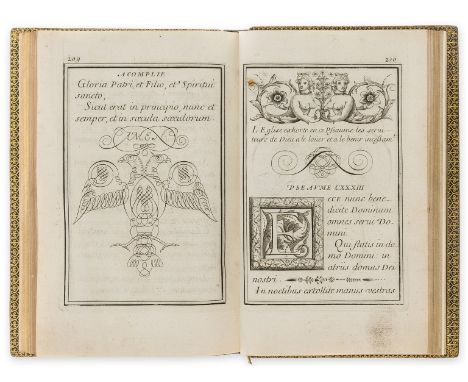 209
A COMPLIE
Gloria Patri, et Filio, et Spiritui
sancto,
Sicut erat in principio, nunc et
semper, et in sæcula sæculorum.
210
L'Eglise exhorte en ce Pseaume les servi-
teurs de Dieu à le louer et à le benir
PSEAUME CXXXIII
Ecce nunc bene-
dicite Dominum
omnes servi Do-
mini.
Qui statis in do-
mo Domini in
atriis domus Dei
nostri.
In noctibus extollite manus vestras